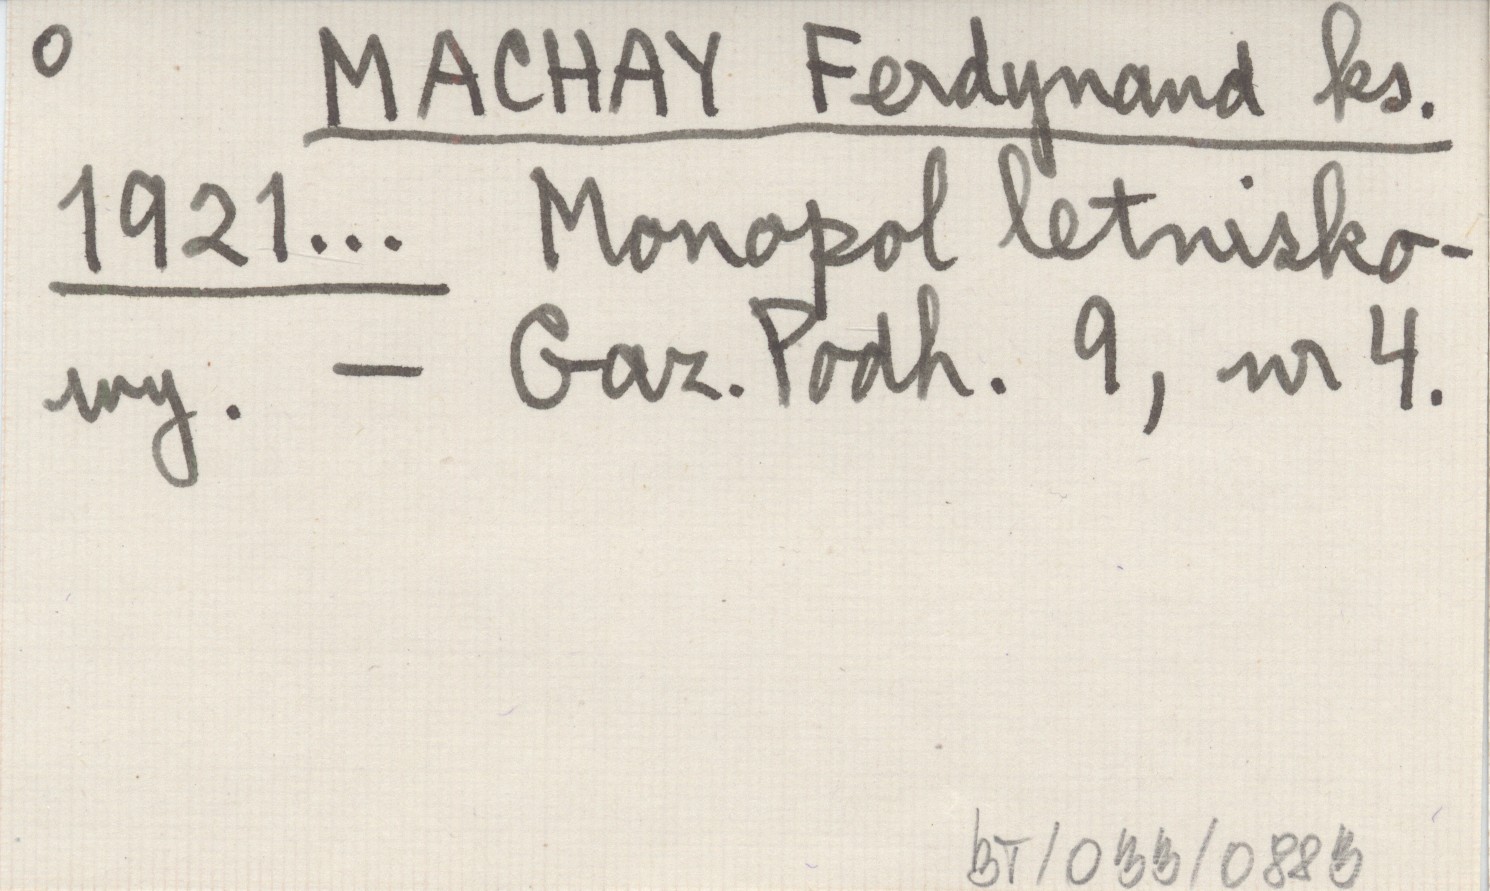 o MACHAY Ferdynand ks.
1921... Monopol letnisko-
wy. — Gaz. Podh. 9, nr 4.
BT/033/0883